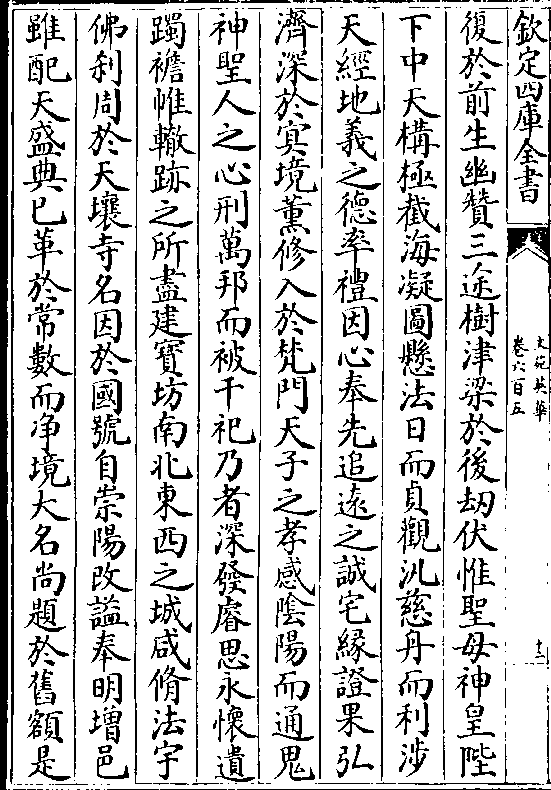 欽定四庫全書
文苑英華
卷六百五
十三
復於前生幽贊三途樹津梁於後刼伏惟聖母神皇陛
下中天構極截海凝圖懸法日而貞觀汎慈舟而利涉
天經地義之德率禮因心奉先追遠之誠宅緣證果弘
濟深於寘境薰修入於梵門天子之孝感隂陽而通鬼
神聖人之心刑萬邦而被千祀乃者深發睿思永懷遺
躅襜帷轍跡之所盡建寳坊南北東西之城咸脩法宇
佛刹周於天壤寺名因於國號自崇陽改謚奉明增邑
雖配天盛典已革於常數而净境大名尚題於舊額是